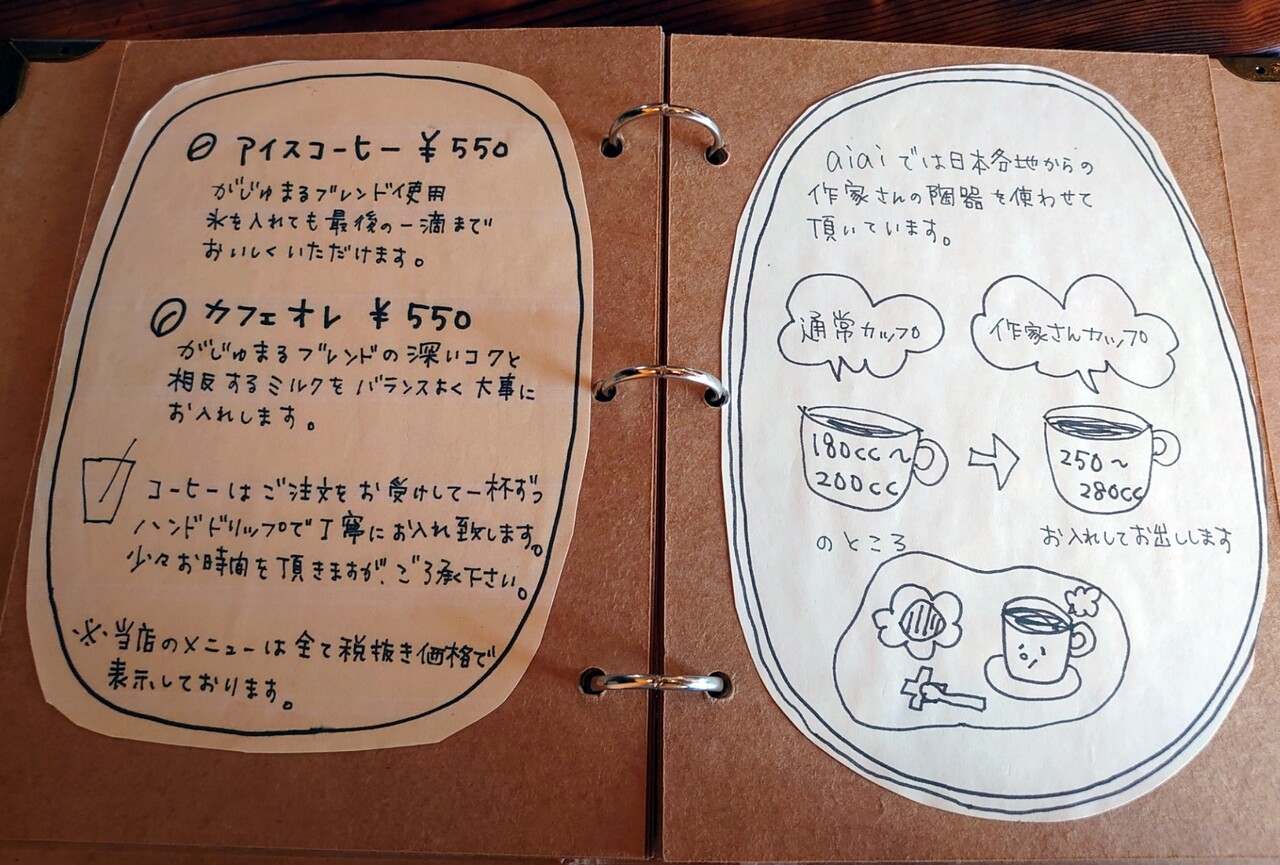 アイスコーヒー ¥550
がじゅまるブレンド使用
氷を入れても最後の一滴まで
おいしくいただけます。
カフェオレ ¥550
がじゅまるブレンドの深いコクと
相反するミルクをバランスよく大事に
お入れします。
コーヒーはご注文をお受けして一杯ずつ
ハンドドリップで丁寧にお入れ致します。
少々お時間を頂きますが、ご了承下さい。
※当店のメニューは全て税抜き価格で
表示しております。
aiaiでは日本各地からの
作家さんの陶器を使わせて
頂いています。
通常カップ
作家さんカップ
180cc〜
200cc
250〜
280cc
のところ
お入れしてお出しします